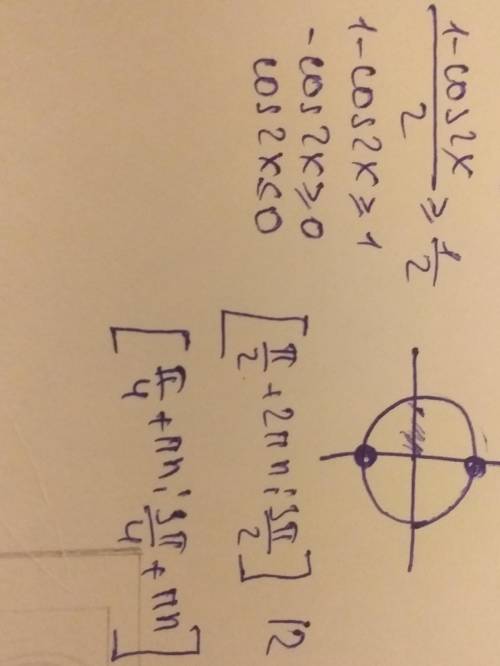 (1-cos2x)/2 ≥ 1/2
1-cos2x ≥ 1
-cos2x ≥ 0
cos2x ≤ 0
[π/2 + 2πn; 3π/2] /2
[π/4 + πn; 3π/4 + πn]